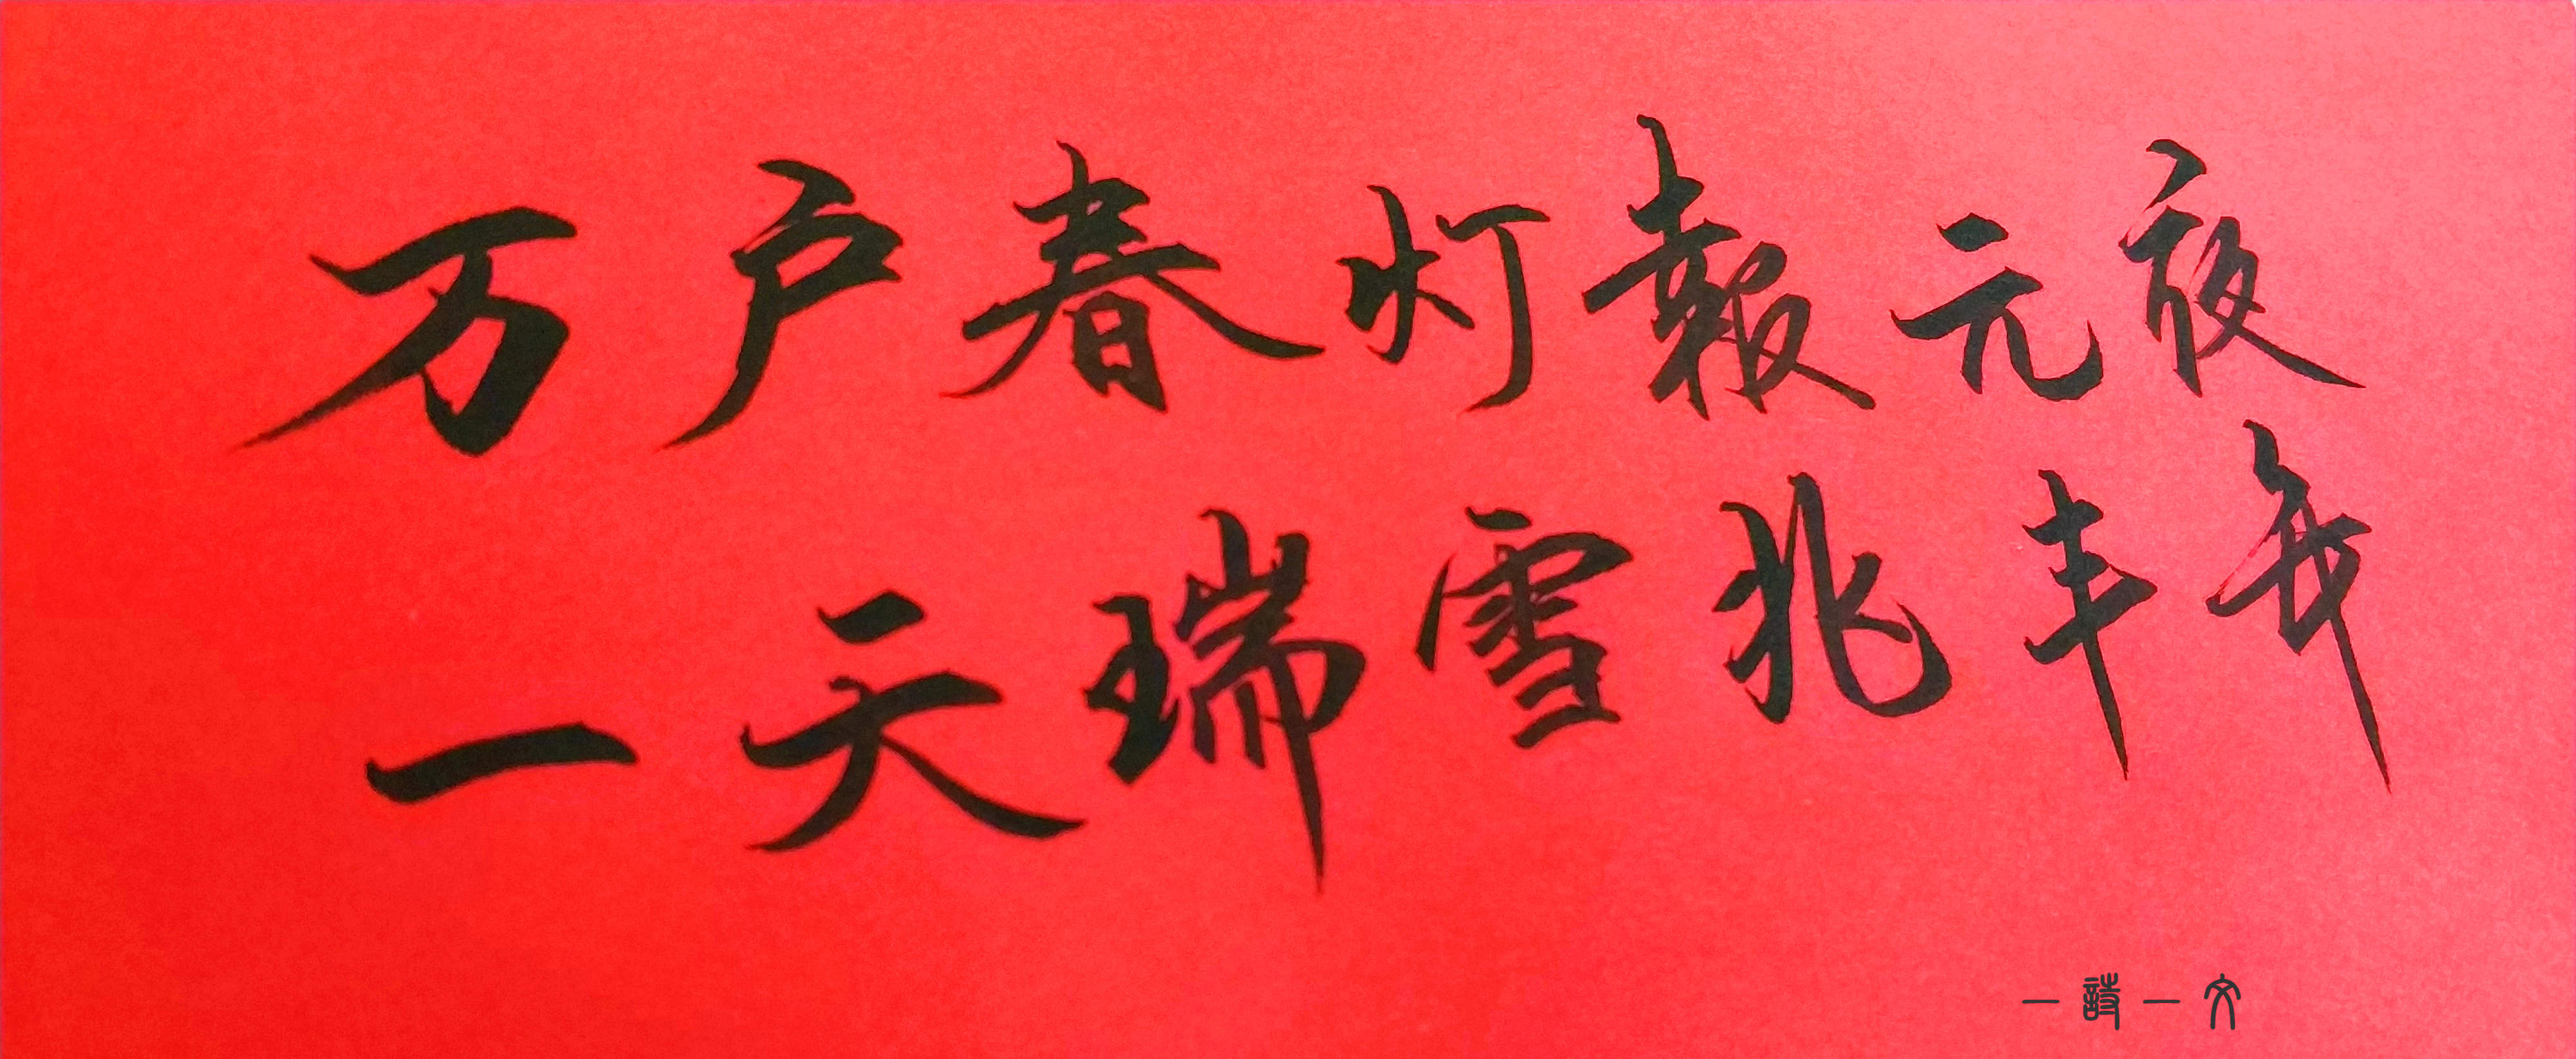 万户春灯報元夜
一天瑞雪兆丰年
一詩一文